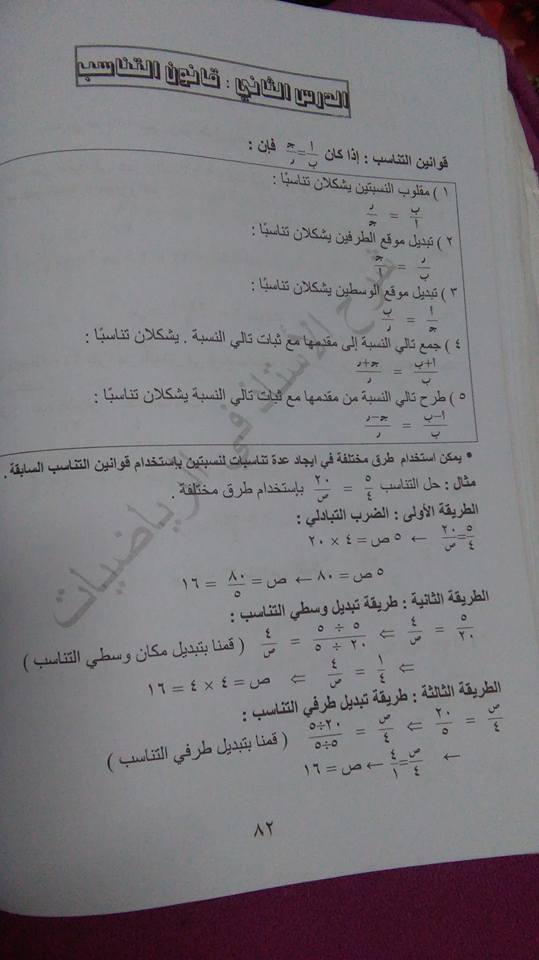 الدرس الثاني : قانون التناسب
قوانين التناسب : إذا كان ا/ب = جـ/د فإن :
١ ) مقلوب النسبتين يشكلان تناسبًا :
ب/ا = د/جـ
٢ ) تبديل موقع الطرفين يشكلان تناسبًا :
د/ب = جـ/ا
٣ ) تبديل موقع الوسطين يشكلان تناسبًا :
ا/جـ = ب/د
٤ ) جمع تالي النسبة إلى مقدمها مع ثبات تالي النسبة . يشكلان تناسبًا :
ا+ب/ب = جـ+د/د
٥ ) طرح تالي النسبة من مقدمها مع ثبات تالي النسبة يشكلان تناسبًا :
ا-ب/ب = جـ-د/د
• يمكن استخدام طرق مختلفة في ايجاد عدة تناسبات لنسبتين بإستخدام قوانين التناسب السابقة .
مثال : حل التناسب ٥/٤ = ٢٠/ص بإستخدام طرق مختلفة .
الطريقة الأولى : الضرب التبادلي :
٥/٤ = ٢٠/ص ← ٥ ص = ٤ × ٢٠
٥ ص = ٨٠ ← ص = ٨٠/٥ = ١٦
الطريقة الثانية : طريقة تبديل وسطي التناسب :
٥/٢٠ = ٤/ص ⇐ ٥ ÷ ٥/٢٠ ÷ ٥ = ٤/ص ( قمنا بتبديل مكان وسطي التناسب )
⇐ ١/٤ = ٤/ص ⇐ ص = ٤ × ٤ = ١٦
الطريقة الثالثة : طريقة تبديل طرفي التناسب :
ص/٤ = ٢٠/٥ ⇐ ص/٤ = ٢٠÷٥/٥÷٥ ( قمنا بتبديل طرفي التناسب )
← ص/٤ = ٤/١ ← ص = ١٦
٨٢
شرح الأستاذ في الرياضيات